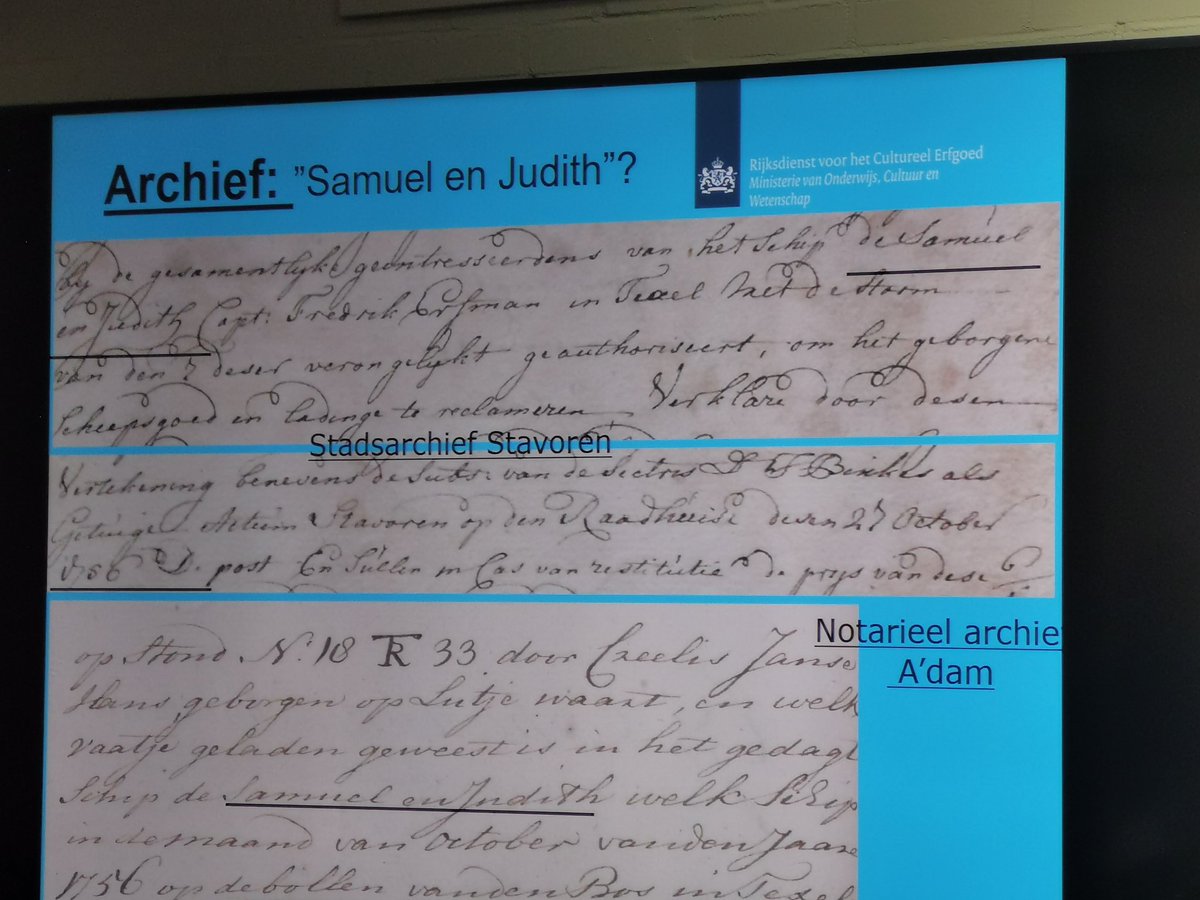 Archief: "Samuel en Judith"?
Rijksdienst voor het Cultureel Erfgoed
Ministerie van Onderwijs, Cultuur en
Wetenschap
by de gesamentlyke geintresseerdens van het Schip de Samuel
en Judith Capt: Fredrik in Texel met de Storm
van den 7 deser verongelykt geauthoriseert, om het geborgene
Scheepsgoed en ladinge te reclameren Verklare door desen
Stadsarchief Stavoren
Vertekening benevens de Subs: van de Sectris als
Getuige Actum Stavoren op den Raadhuise desen 27 October
1756 post En Sullen in Cas van restitutie de prys van dese
Notarieel archie
A'dam
op Stond N: 18 TR 33 door Creelis Janse
Hans geborgen op Lutje waart, en welk
vaatje geladen geweest is in het gedagt
Schip de Samuel en Judith welk Schip
in de maand van October van den Jaare
1756 op de bollen van den Bos in Texel